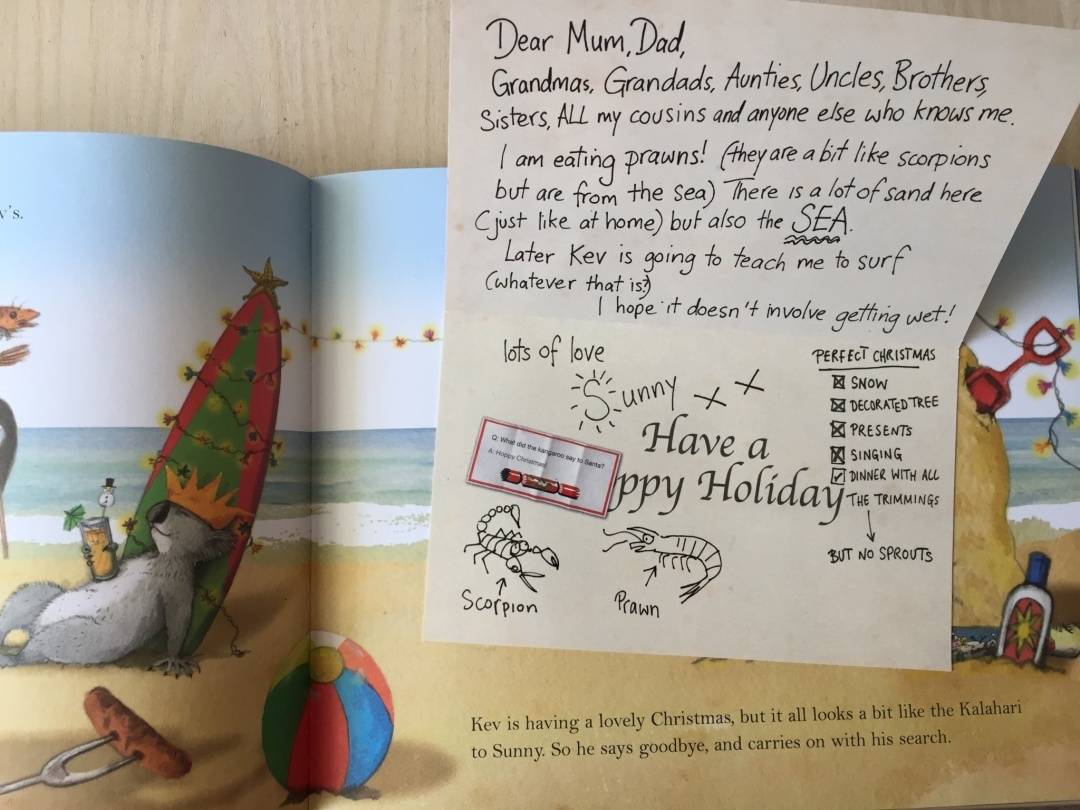 v's.
Dear Mum, Dad,
Grandmas, Grandads, Aunties, Uncles, Brothers,
Sisters, ALL my cousins and anyone else who knows me.
I am eating prawns! (they are a bit like scorpions
but are from the sea) There is a lot of sand here
(just like at home) but also the SEA.
Later Kev is going to teach me to surf
(whatever that is?)
I hope it doesn't involve getting wet!
lots of love
Sunny x x
PERFECT CHRISTMAS
☒ SNOW
☒ DECORATED TREE
☒ PRESENTS
☒ SINGING
☑ DINNER WITH ALL
THE TRIMMINGS
BUT NO SPROUTS
Q: What did the kangaroo say to Santa?
A: Hoppy Christmas
Have a
ppy Holiday
Scorpion
Prawn
Kev is having a lovely Christmas, but it all looks a bit like the Kalahari
to Sunny. So he says goodbye, and carries on with his search.